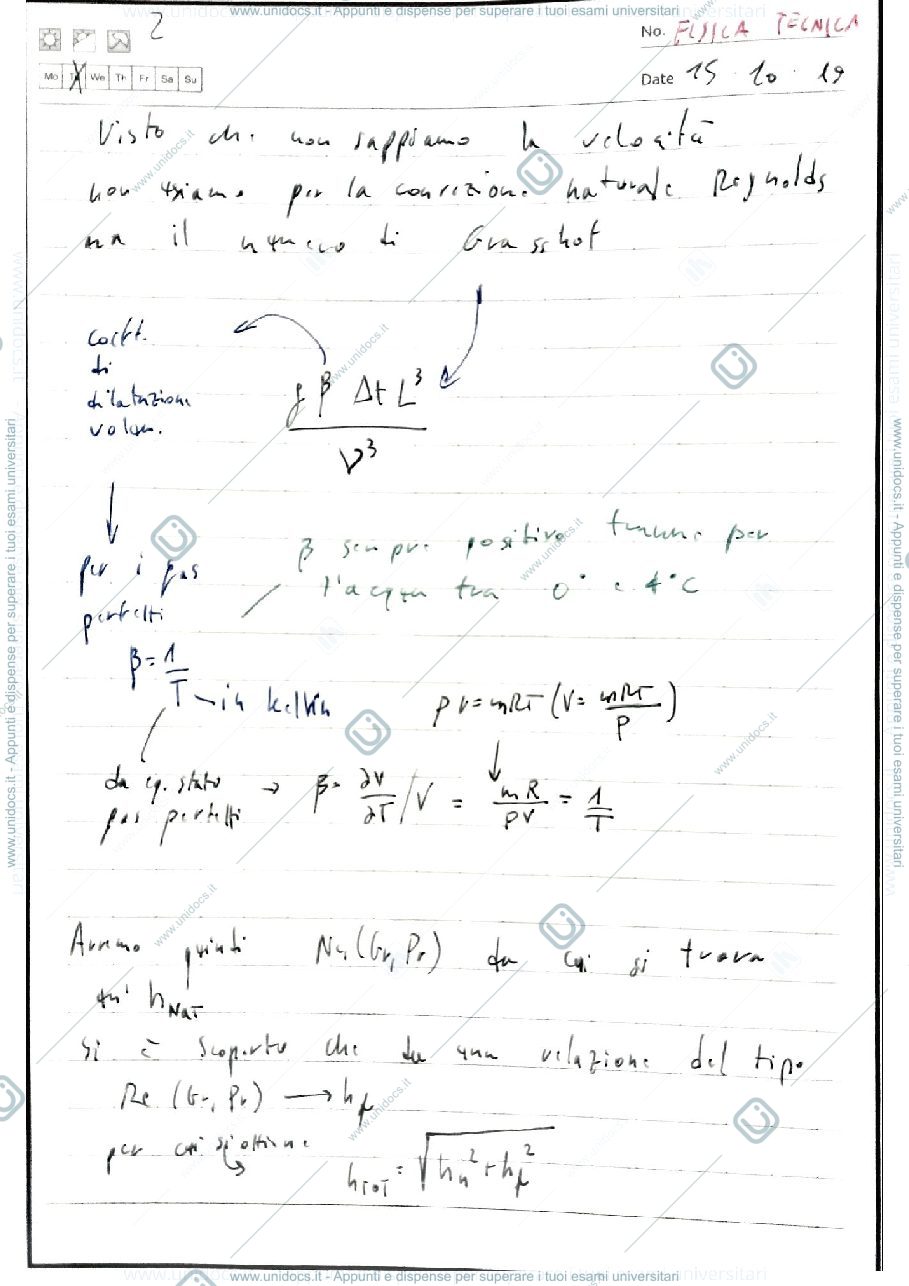 www.unidocs.it - Appunti e dispense per superare i tuoi esami universitari
2
No. FISICA TECNICA
Mo Tu We Th Fr Sa Su
Date 15 · 10 · 19
Visto che non sappiamo la velocità
non usiamo per la convezione naturale Reynolds
ma il numero di Grasshof
coeff.
di
dilatazione
volum.
g β Δt L³
ν³
β sempre positivo tranne per
l'acqua tra 0° e 4°C
per i gas
perfetti
β = 1/T in kelvin
pV = mRT (V = mRT/P)
da eq. stato
gas perfetti → β = ∂V/∂T /V = mR/PV = 1/T
Avremo quindi Nu(Gr, Pr) da cui si trova
un' hNAT
Si è scoperto che da una relazione del tipo
Re (Gr, Pr) → hf
per cui si ottiene
hTOT = √(hn² + hf²)
www.unidocs.it - Appunti e dispense per superare i tuoi esami universitari